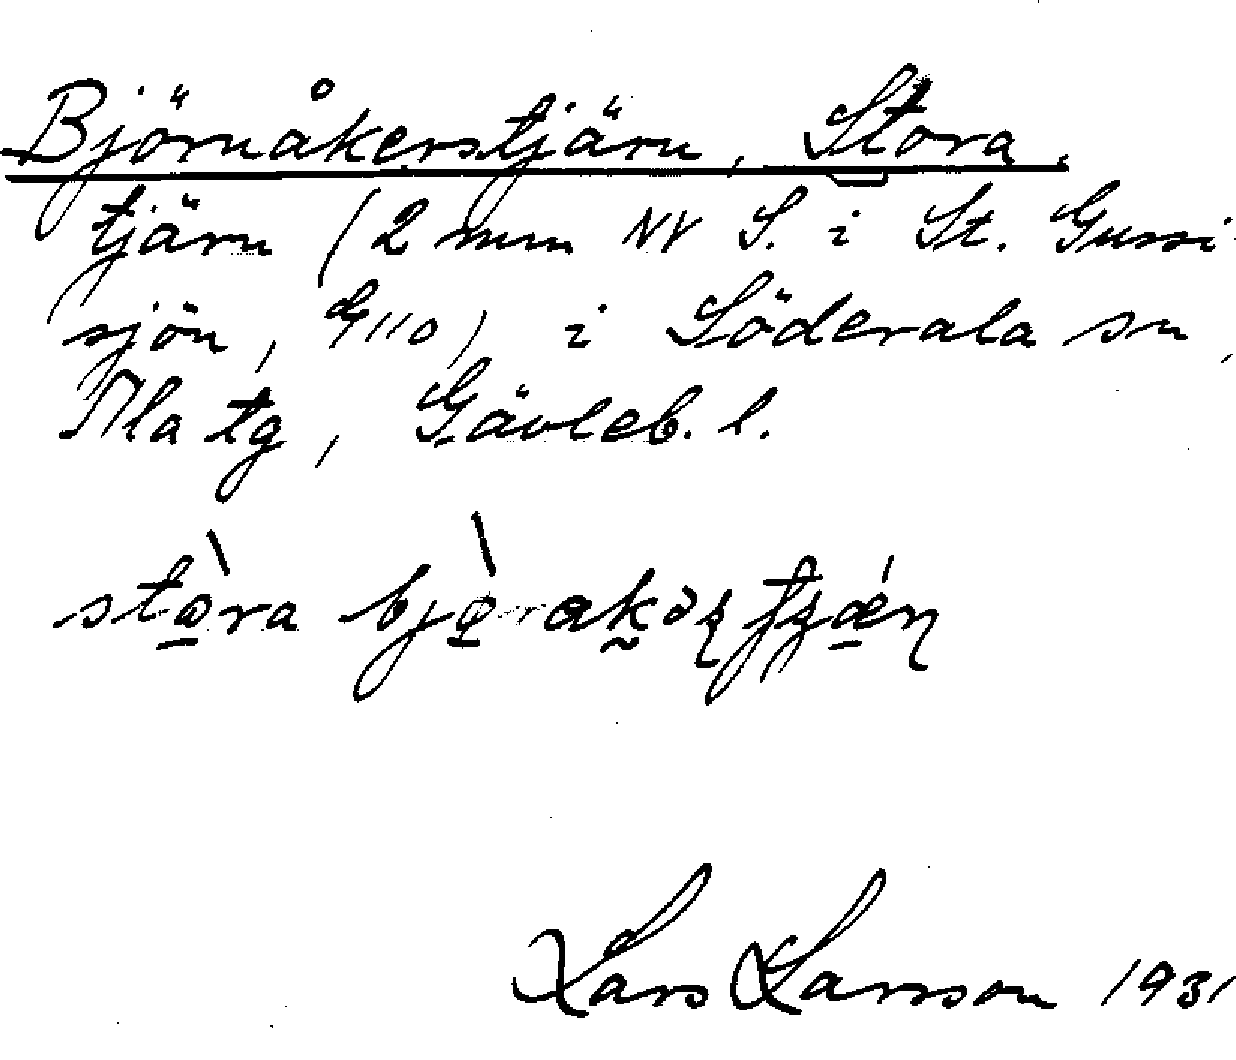 Björnåkerstjärn, Stora.
tjärn (2 mm NV S. i St. Gussi
sjön, G110) i Söderala sn,
Ala tg, Gävleb. l.
stò̠ra
Lars Larsson 1931